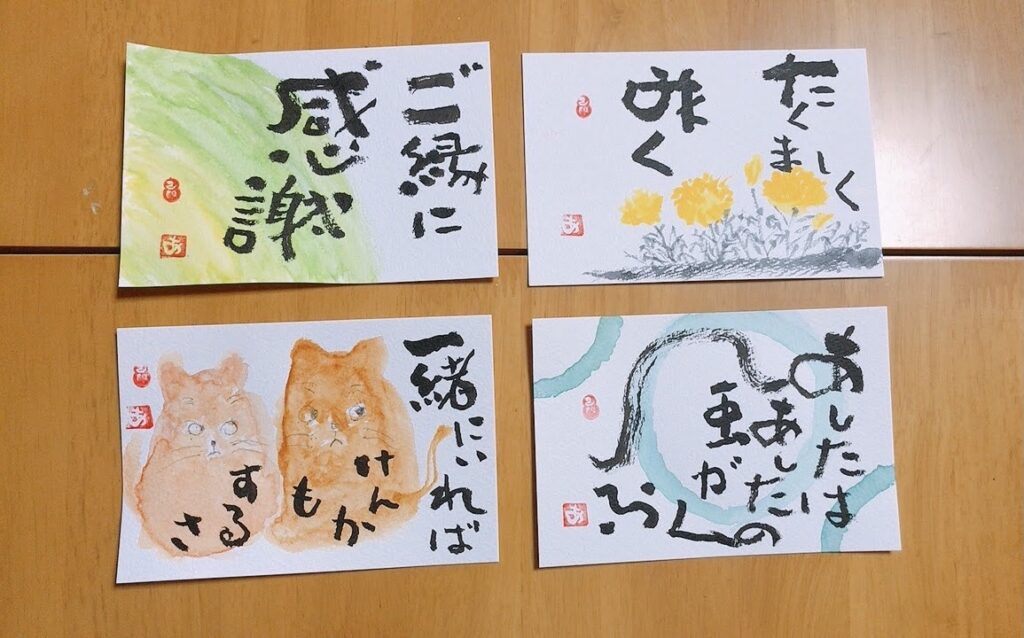 ご縁に
感謝
たくましく
咲く
一緒にいれば
けんかも
するさ
あしたは
あしたの
風が
ふく